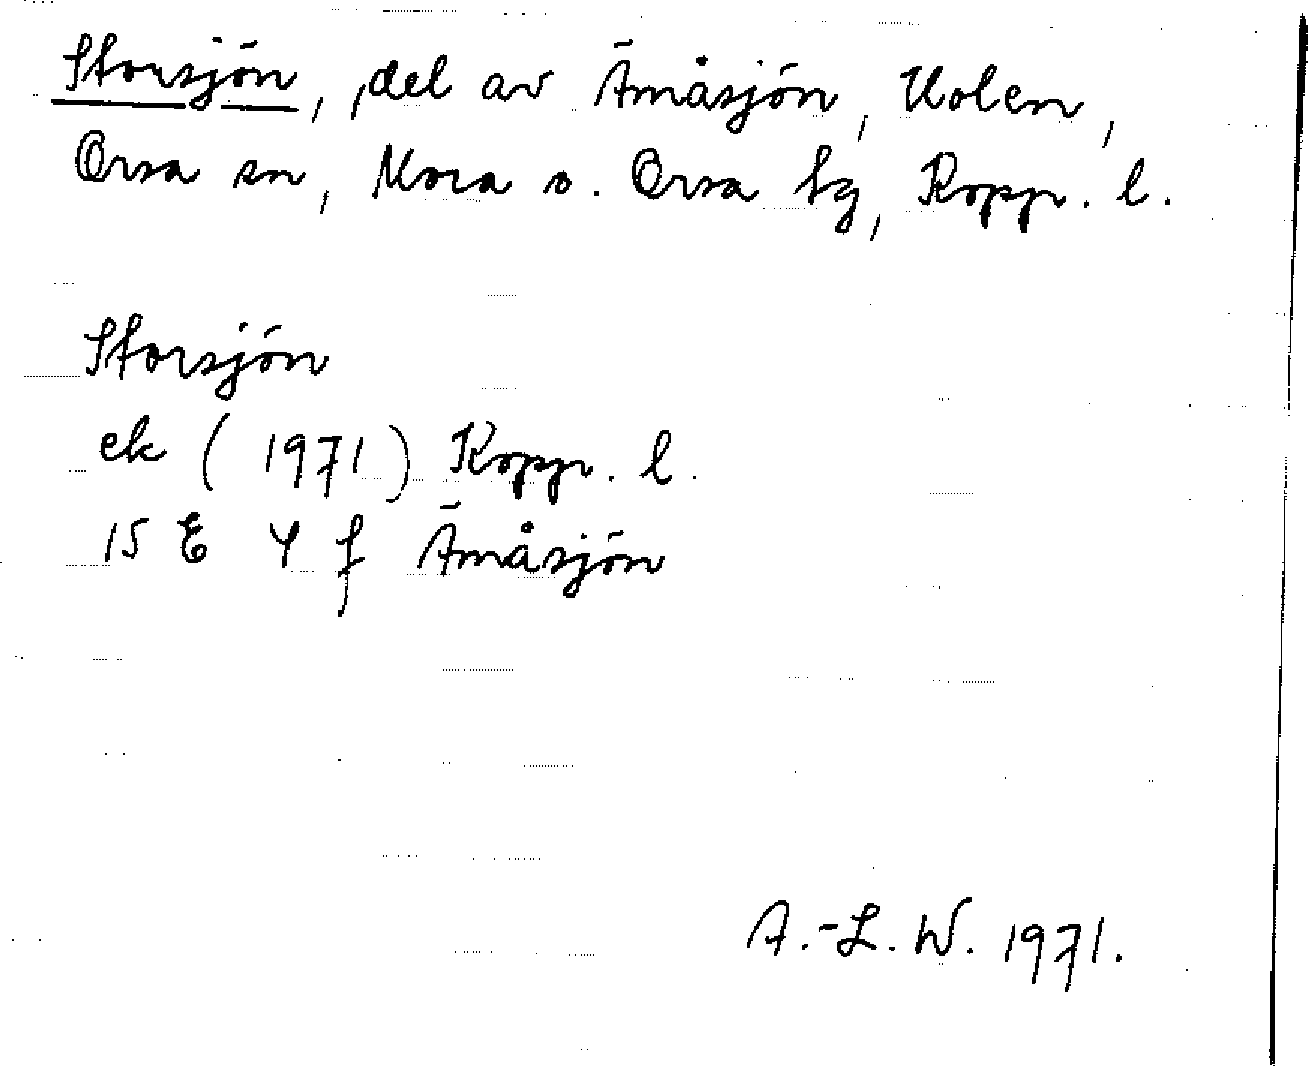 Storsjön, del av Ämåsjön, Uolen,
Orsa sn, Mora o. Orsa tg, Kopp. l.
Storsjön
ek (1971) Kopp. l.
15 E 4 f Ämåsjön
A.-L. W. 1971.